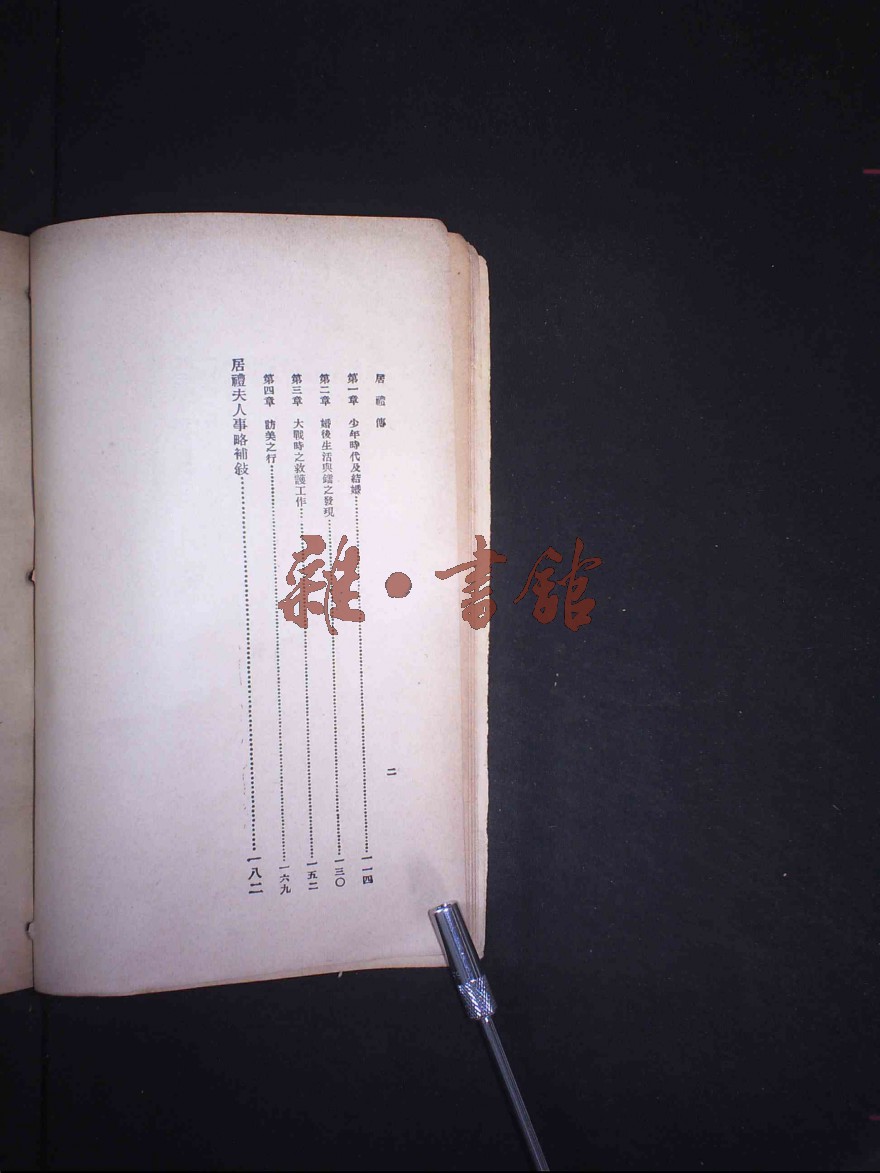 居禮傳
二
第一章 少年時代及結婚……一一四
第二章 婚後生活與鐳之發現……一三〇
第三章 大戰時之救護工作……一五二
第四章 訪美之行……一六九
居禮夫人事略補敍……一八二
雜·書館